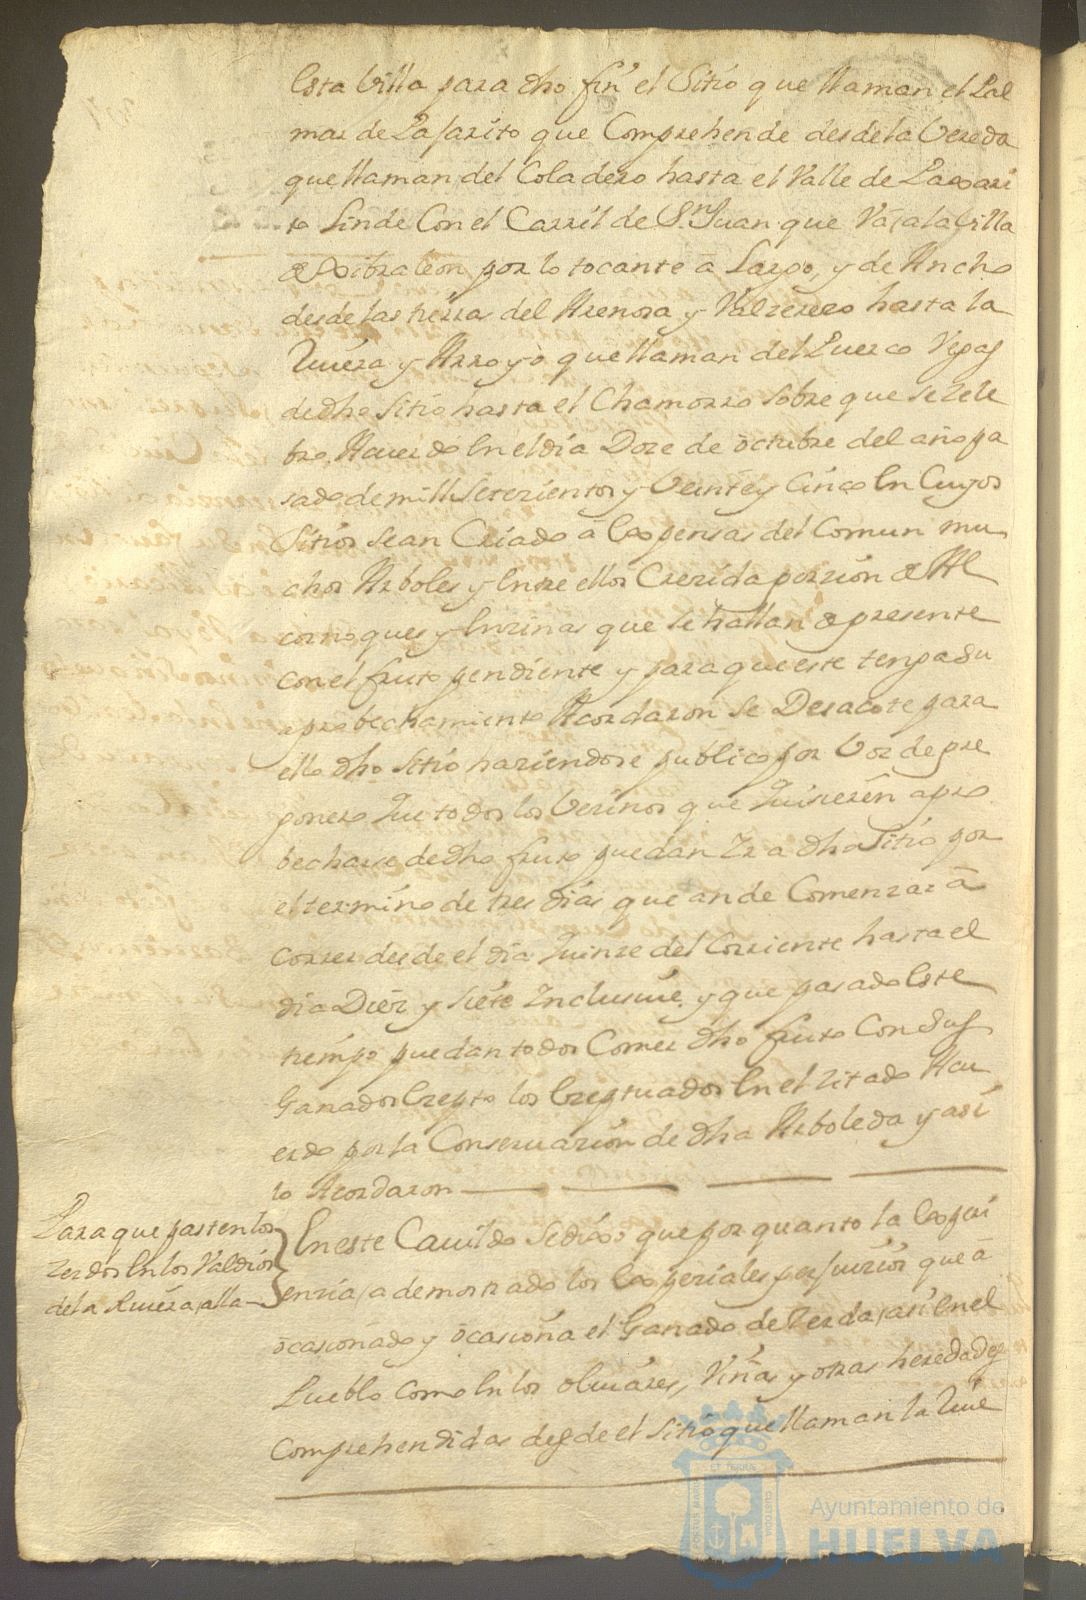 esta Villa para dho fin el Sitio que llaman el Pal
mar de Pajarito que Comprehende desde la Vereda
que llaman del Coladero hasta el Valle de Paxari
to linde Con el Carril de Sn. Juan que Va a la Villa
de Xibraleon por lo tocante a Largo, y de Ancho
desde las tierras del Arenosa y Valzerezo hasta la
Riuera y Arroyo que llaman del Puerco Vegas
de dho Sitio hasta el Chamorro sobre que se zele
bro Acuerdo en el dia Doze de octubre del año pa
sado de mill setezientos y Veinte y Cinco en Cuyos
Sitios se an Criado a expensas del Comun mu
chos Arboles y entre ellos Crezida porzion de Al
cornoques y enzinas que se hallan de presente
con el fruto pendiente y para que este tenga su
aprobechamiento Acordaron se Desacote para
ello dho sitio haziendose publico por Voz de pre
gonero Que todos los Vezinos que Quisieren apro
becharse de dho fruto puedan Ir a dho Sitio por
el termino de tres dias que an de Comenzar a
correr desde el dia Quinze del Corriente hasta el
dia Diez y siete Inclusiue, y que pasado este
tiempo puedan todos Comer dho fruto Con sus
Ganados Ezepto los Ezeptuados en el zitado Acu
erdo por la Conseruazion de dha Arboleda y asi
lo Acordaron
Para que pasten los
zerdos en los Valdios
de la Riuera alla
En este Cauildo se dixo que por quanto la expe
rienzia a demostrado los expeziales perjuizios que a
ocasionado y ocasiona el Ganado de Zerda asi en el
Pueblo como en los oliuares, Viñas y otras heredades
Comprehendidas desde el sitio que llaman la Riue
PORTUS MARIS ET TERRAE CUSTODIA
Ayuntamiento de
HUELVA